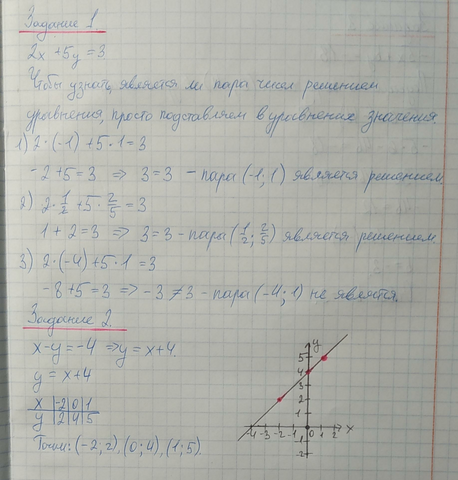 Задание 1
2x + 5y = 3
Чтобы узнать, является ли пара чисел решением
уравнения, просто подставляем в уравнениях значения
1) 2·(-1) + 5·1 = 3
-2 + 5 = 3 ⇒ 3 = 3 - пара (-1; 1) является решением
2) 2·1/2 + 5·2/5 = 3
1 + 2 = 3 ⇒ 3 = 3 - пара (1/2; 2/5) является решением
3) 2·(-4) + 5·1 = 3
-8 + 5 = 3 ⇒ -3 ≠ 3 - пара (-4; 1) не является.
Задание 2.
x - y = -4 ⇒ y = x + 4.
y = x + 4
x | -2 | 0 | 1
y | 2 | 4 | 5
Точки: (-2; 2), (0; 4), (1; 5).
y
5
4
3
2
1
-4 -3 -2 -1 0 1 2 x
-1
-2